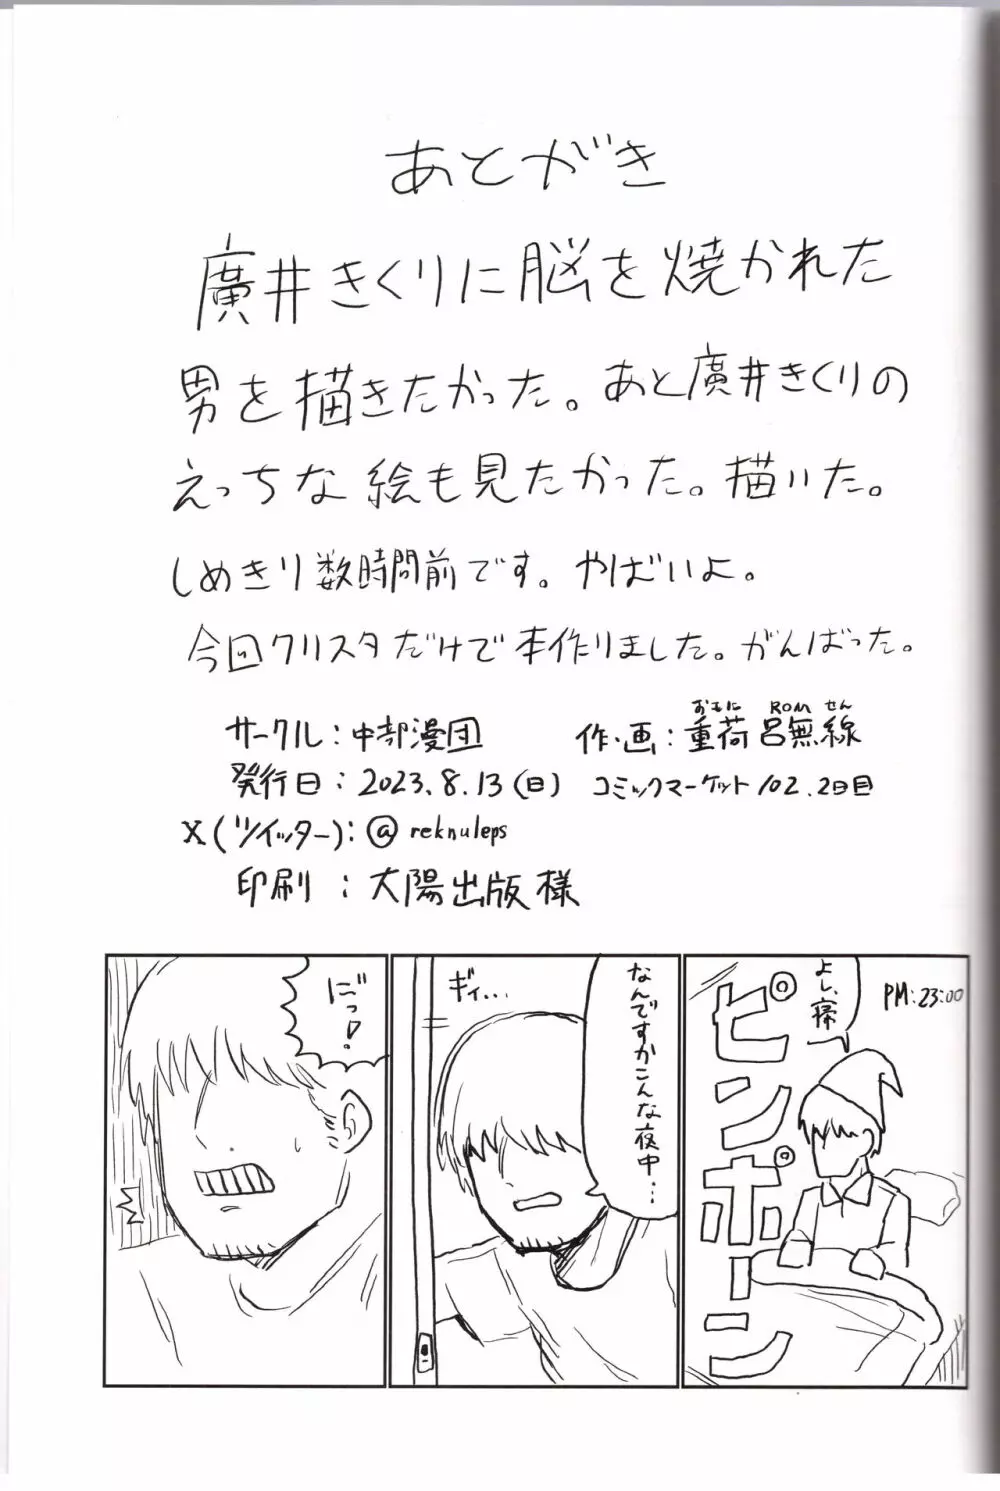 あとがき
廣井きくりに脳を焼かれた
男を描きたかった。あと廣井きくりの
えっちな絵も見たかった。描いた。
しめきり数時間前です。やばいよ。
今回クリスタだけで本作りました。がんばった。
サークル：中部漫団
作・画：重荷呂無線
おもに ROM せん
発行日：2023.8.13(日) コミックマーケット102.2日目
X(ツイッター)：@reknuleps
印刷：大陽出版様
PM:23:00
よし、寝
ピンポーン
なんですかこんな夜中…
ギィ…
にっ!